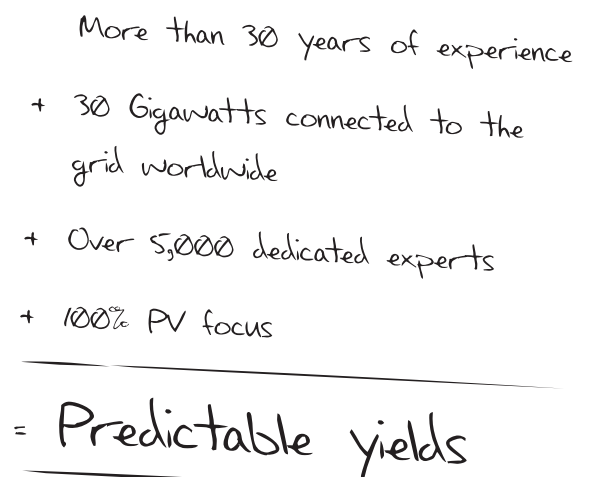 More than 30 years of experience
+ 30 Gigawatts connected to the
grid worldwide
+ Over 5,000 dedicated experts
+ 100% PV focus
= Predictable yields